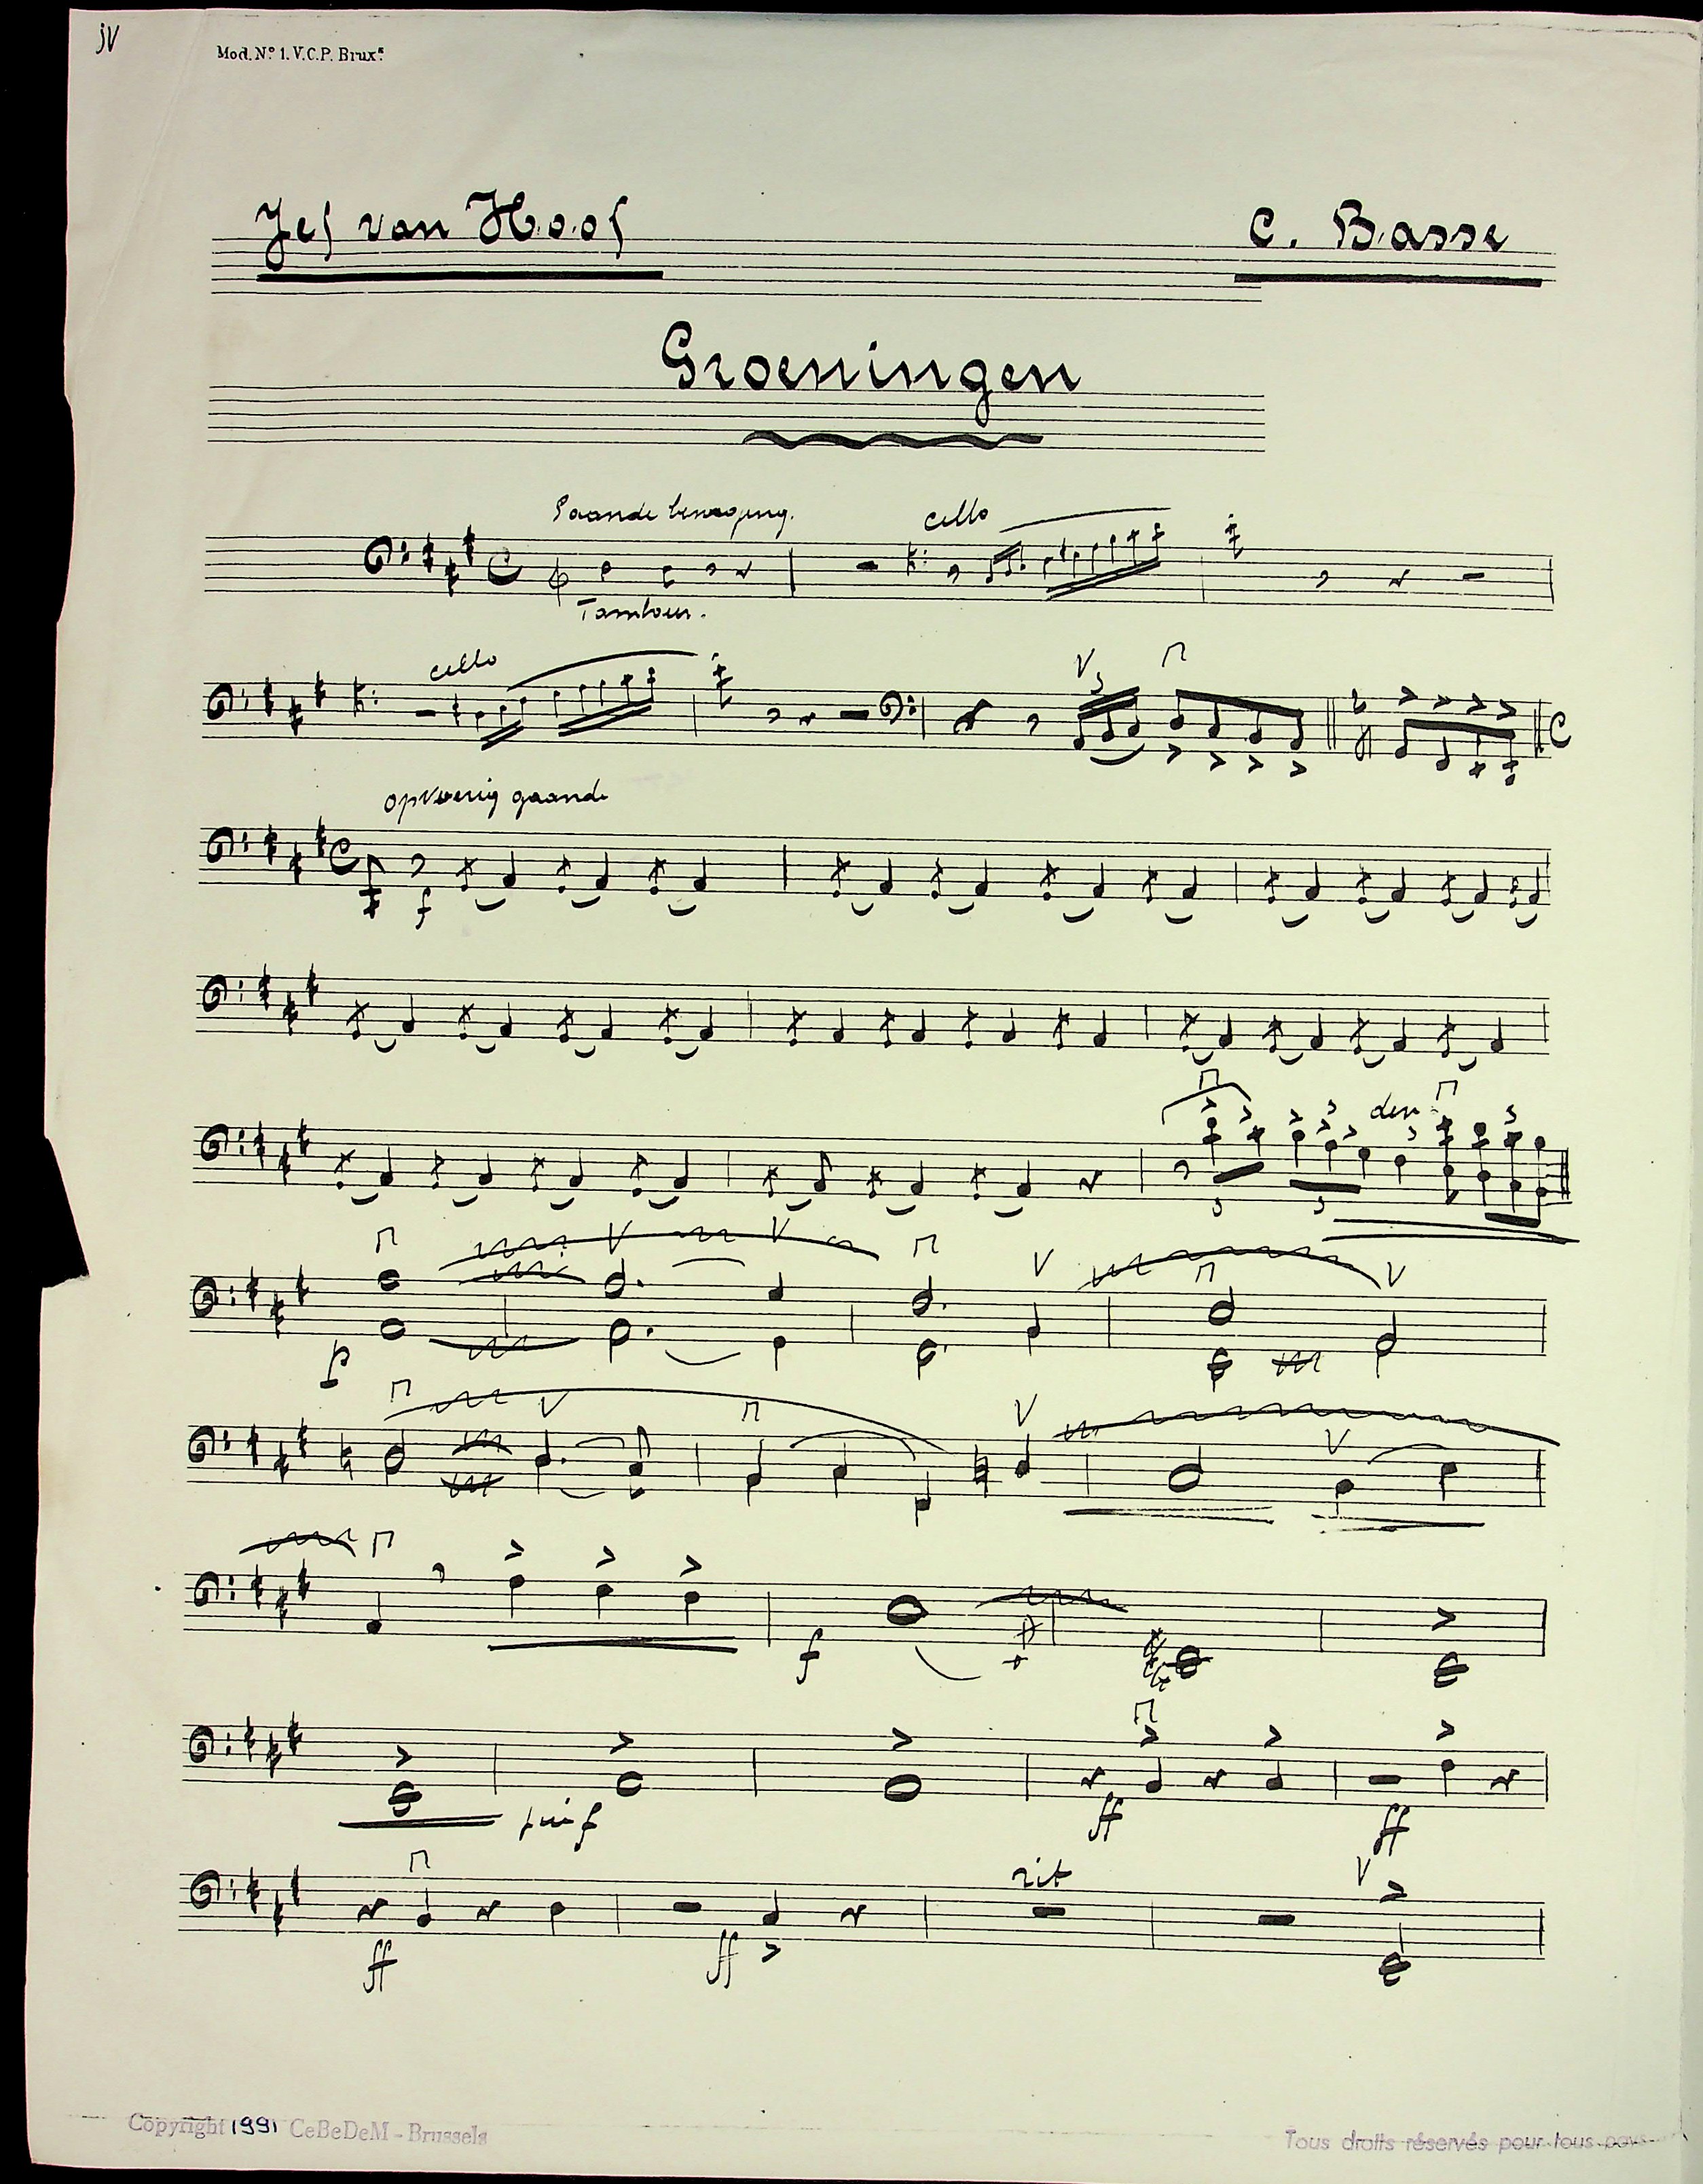 jV
Mod. Nº 1. V.C.P. Bruxˢ.
Jef van Hoof
C. Basse
Groeningen
Gaande beweging.
cello
Tambour.
cello
V 3
opvoerig gaande
f
3 den. 3
3 3
V V V V
p
V V V
f
più f ff ff
rit V
ff ff
Copyright 1991 CeBeDeM - Brussels
Tous droits réservés pour tous pays